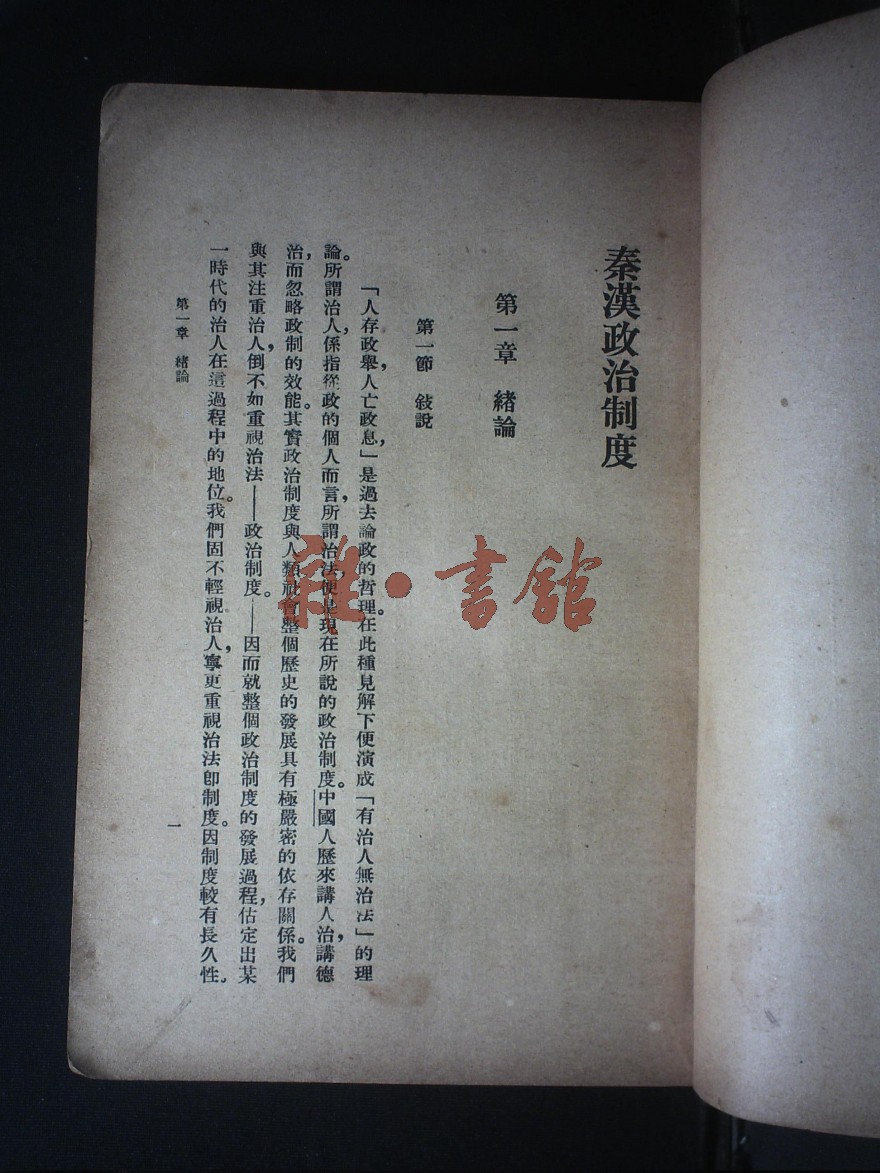 秦漢政治制度
第一章 緒論
第一節 敍說
「人存政舉，人亡政息，」是過去論政的哲理。在此種見解下便演成「有治人無治法」的理
論。所謂治人，係指從政的個人而言，所謂治法，便是現在所說的政治制度。中國人歷來講人治，講德
治，而忽略政制的效能。其實政治制度與人類社會整個歷史的發展具有極嚴密的依存關係。我們
與其注重治人，倒不如重視治法——政治制度。——因而就整個政治制度的發展過程，估定出某
一時代的治人在這過程中的地位。我們固不輕視治人，寧更重視治法卽制度。因制度較有長久性。
第一章 緒論
一
雜·書館